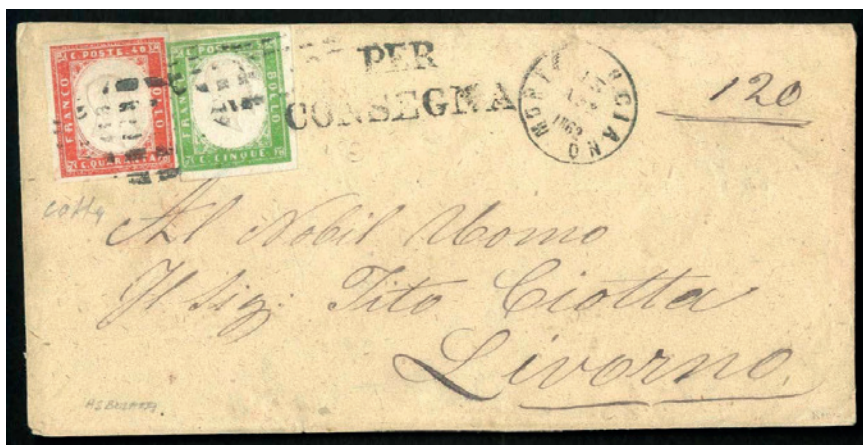 C. POSTE 40
FRANCO
BOLLO
C. QUARANTA
C. POSTE
FRANCO
BOLLO
C. CINQUE
PER
CONSEGNA
1862
120
Al Nobil Uomo
Il Sig: Tito Ciotta
Livorno